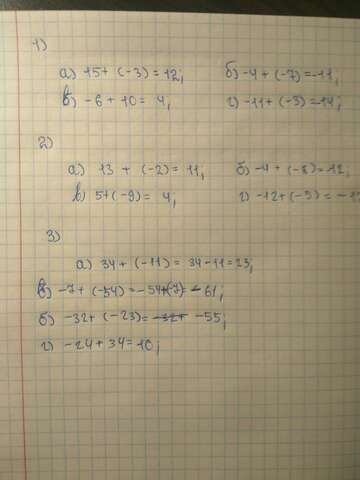 1)
а) 15 + (-3) = 12; б) -4 + (-7) = -11;
в) -6 + 10 = 4; г) -11 + (-3) = -14;
2)
а) 13 + (-2) = 11; б) -4 + (-8) = -12;
в) 5 + (-9) = 4; г) -12 + (-5) =
3)
а) 34 + (-11) = 34 - 11 = 23;
в) -7 + (-54) = -54 + (-7) = -61;
б) -32 + (-23) = -55;
г) -24 + 34 = 10;